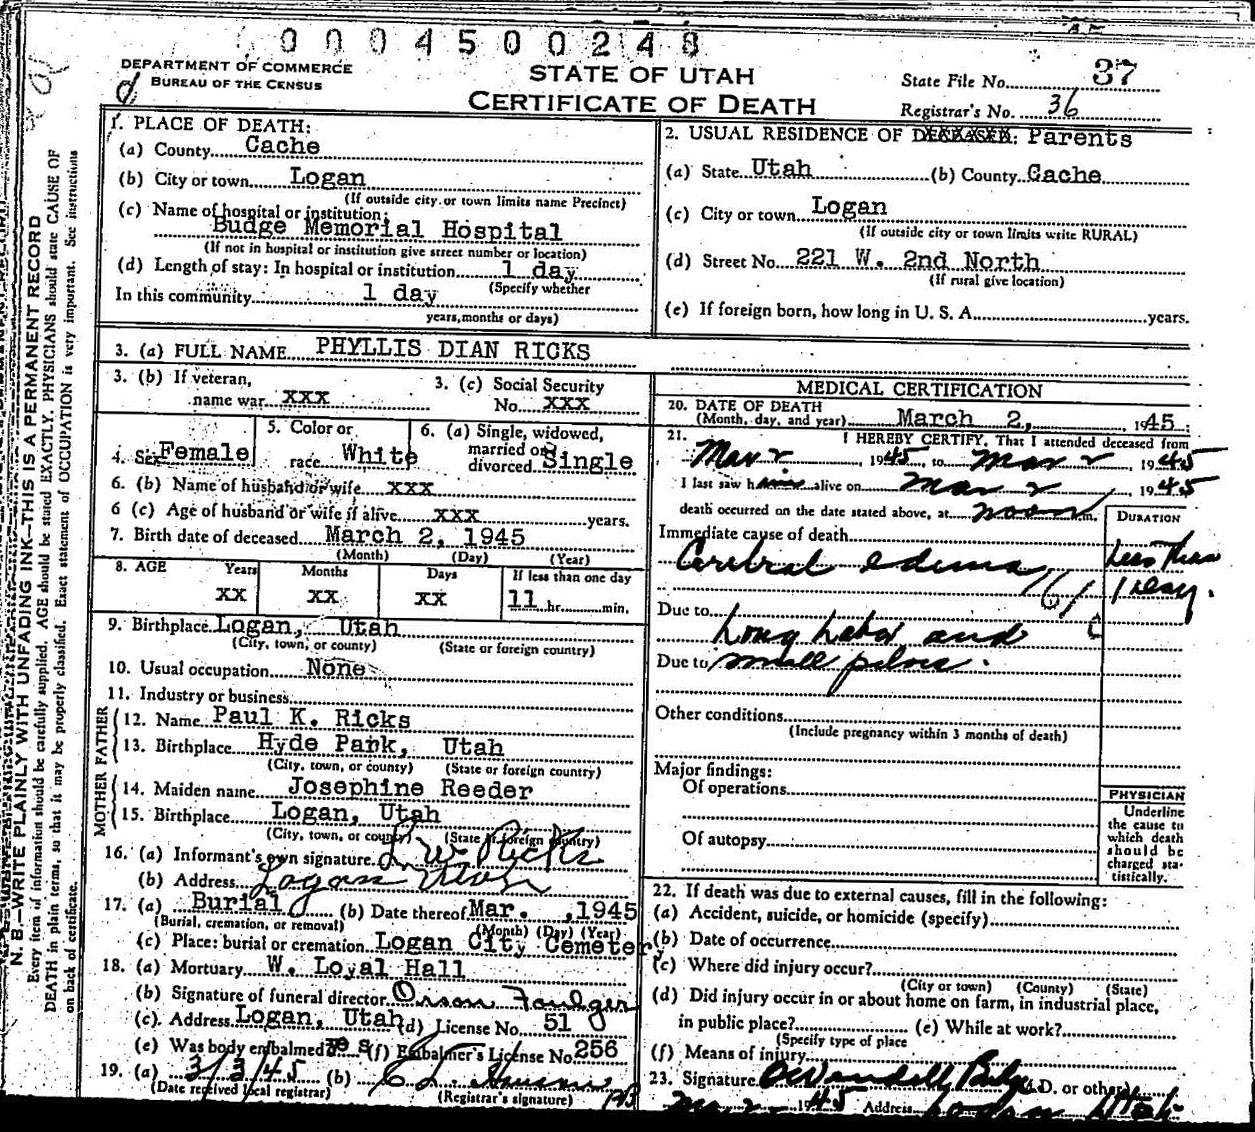 0004500248
DEPARTMENT OF COMMERCE
BUREAU OF THE CENSUS
STATE OF UTAH
CERTIFICATE OF DEATH
State File No. 37
Registrar's No. 36
N. B.—WRITE PLAINLY WITH UNFADING INK—THIS IS A PERMANENT RECORD
Every item of information should be carefully supplied. AGE should be stated EXACTLY. PHYSICIANS should state CAUSE OF
DEATH in plain terms, so that it may be properly classified. Exact statement of OCCUPATION is very important. See instructions
on back of certificate.
1. PLACE OF DEATH:
(a) County Cache
(b) City or town Logan
(If outside city or town limits name Precinct)
(c) Name of hospital or institution:
Budge Memorial Hospital
(If not in hospital or institution give street number or location)
(d) Length of stay: In hospital or institution 1 day
(Specify whether
In this community 1 day
years, months or days)
2. USUAL RESIDENCE OF DECEASED: Parents
(a) State Utah (b) County Cache
(c) City or town Logan
(If outside city or town limits write RURAL)
(d) Street No. 221 W. 2nd North
(If rural give location)
(e) If foreign born, how long in U. S. A. years.
3. (a) FULL NAME PHYLLIS DIAN RICKS
3. (b) If veteran,
name war XXX
3. (c) Social Security
No. XXX
4. Sex Female
5. Color or
race White
6. (a) Single, widowed,
married or
divorced Single
6. (b) Name of husband or wife XXX
6 (c) Age of husband or wife if alive XXX years.
7. Birth date of deceased March 2, 1945
(Month) (Day) (Year)
8. AGE Years Months Days If less than one day
XX XX XX 11 hr. min.
9. Birthplace Logan, Utah
(City, town, or county) (State or foreign country)
10. Usual occupation None
11. Industry or business
FATHER
12. Name Paul K. Ricks
13. Birthplace Hyde Park, Utah
(City, town, or county) (State or foreign country)
MOTHER
14. Maiden name Josephine Reeder
15. Birthplace Logan, Utah
(City, town, or county) (State or foreign country)
16. (a) Informant's own signature L W Ricks
(b) Address Logan Utah
17. (a) Burial (b) Date thereof Mar. , 1945
(Burial, cremation, or removal) (Month) (Day) (Year)
(c) Place: burial or cremation Logan City Cemetery
18. (a) Mortuary W. Loyal Hall
(b) Signature of funeral director Orson Foulger
(c) Address Logan, Utah (d) License No. 51
(e) Was body embalmed? yes (f) Embalmer's License No. 256
19. (a) 3/3/45 (b)
(Date received local registrar) (Registrar's signature)
MEDICAL CERTIFICATION
20. DATE OF DEATH
(Month, day, and year) March 2, 1945
21. I HEREBY CERTIFY, That I attended deceased from
Mar 2, 1945, to Mar 2, 1945
I last saw him alive on Mar 2, 1945
death occurred on the date stated above, at noon m.
DURATION
Immediate cause of death
Cerebral edema Less than
1 day.
161 c
Due to
Long labor and
Due to small pelvis.
Other conditions
(Include pregnancy within 3 months of death)
Major findings:
Of operations
Of autopsy
PHYSICIAN
Underline
the cause to
which death
should be
charged sta-
tistically.
22. If death was due to external causes, fill in the following:
(a) Accident, suicide, or homicide (specify)
(b) Date of occurrence
(c) Where did injury occur?
(City or town) (County) (State)
(d) Did injury occur in or about home on farm, in industrial place,
in public place? (e) While at work?
(Specify type of place
(f) Means of injury
23. Signature O Wendell Budge (M.D. or other)
Mar 2 1945 Address Logan Utah